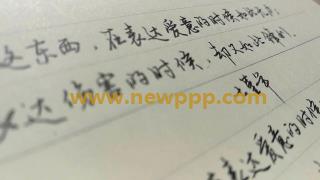 这东西，在表达爱意的时候如此无力，
表达伤害的时候，却又如此锋利。
www.newppp.com
表达爱意的时候